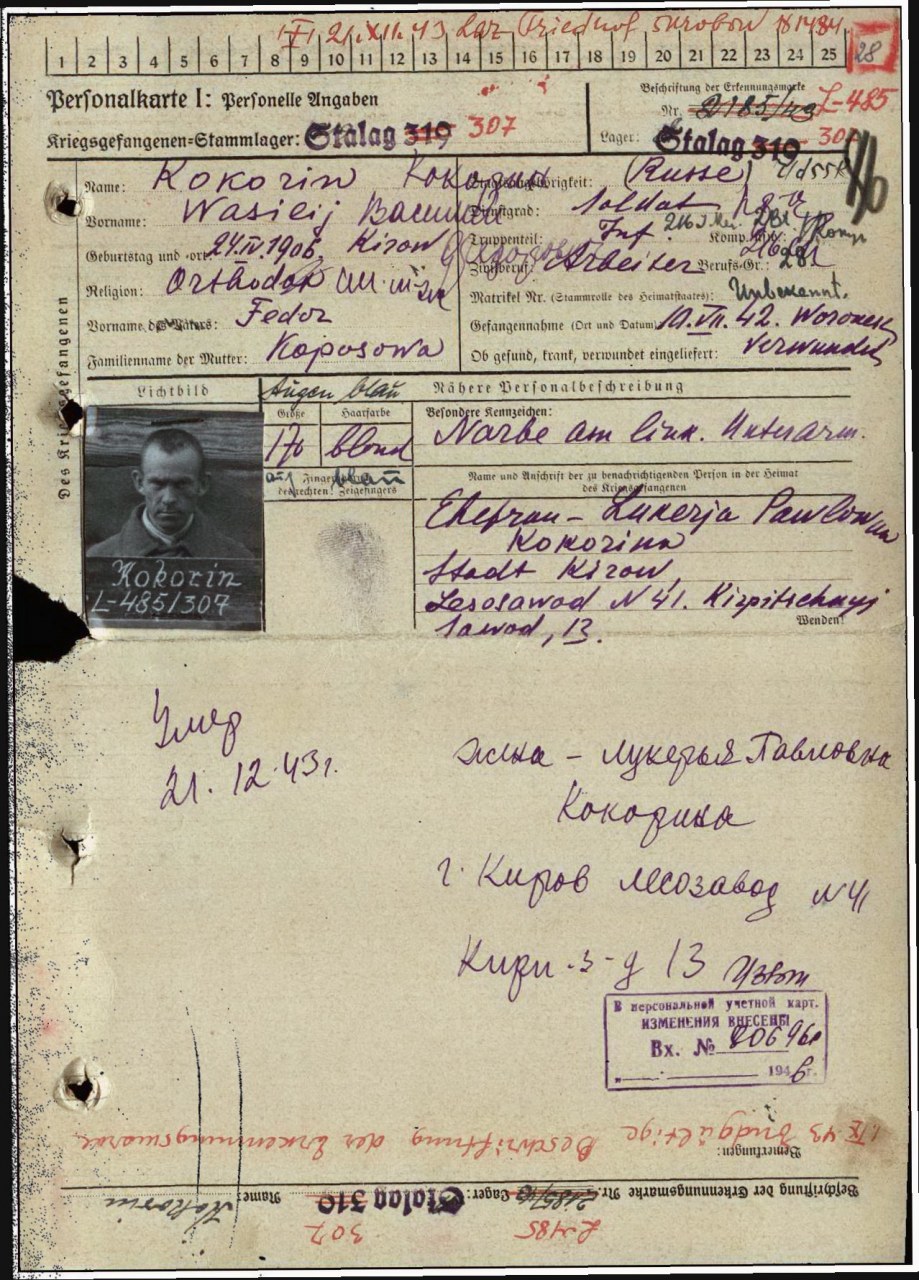 21.XII.43 Laz Friedhof
1 2 3 4 5 6 7 8 9 10 11 12 13 14 15 16 17 18 19 20 21 22 23 24 25 28
Personalkarte I: Personelle Angaben
Kriegsgefangenen-Stammlager: Stalag 319 307
Beschriftung der Erkennungsmarke
Nr. 2185/43 L-485
Lager: Stalag 319
Des Kriegsgefangenen
Name: Kokorin Кокорин
Vorname: Wasilij Василий
Geburtstag und -ort 24.IV.1906, Kirow
Religion: Orthodox
Vorname des Vaters: Fedor
Familienname der Mutter: Koposowa
Staatsangehörigkeit: (Russe) UdSSR
Dienstgrad: Soldat
Truppenteil: Inf. Komp.
Zivilberuf: Arbeiter Berufs-Gr.:
Matrikel Nr. (Stammrolle des Heimatstaates): Unbekannt.
Gefangennahme (Ort und Datum) 10.VII.42. Woronesch
Ob gesund, krank, verwundet eingeliefert: Verwundet
Lichtbild
Augen blau
Nähere Personalbeschreibung
Größe
Haarfarbe
170
blond
Besondere Kennzeichen:
Narbe am link. Unterarm.
Fingerabdruck
des rechten Zeigefingers
blau
Name und Anschrift der zu benachrichtigenden Person in der Heimat
des Kriegsgefangenen
Ehefrau - Lukerja Pawlowna
Kokorina
Stadt Kirow,
Lesosawod N 41. Kirpitschnyj
Sawod, 13.
Wenden!
Kokorin
L-485/307
Умер
21.12.43г.
жена - Лукерья Павловна
Кокорина
г. Киров Лесозавод N 41
Кирп. з-д 13
В персональной учетной карт.
ИЗМЕНЕНИЯ ВНЕСЕНЫ
Вх. №
1946г.
Bemerkungen:
IX.43 Endgültige Beschriftung der Erkennungsmarke
Beschriftung der Erkennungsmarke Nr. 2185/43 Lager: Stalag 319 Name: Kokorin
L-485 307